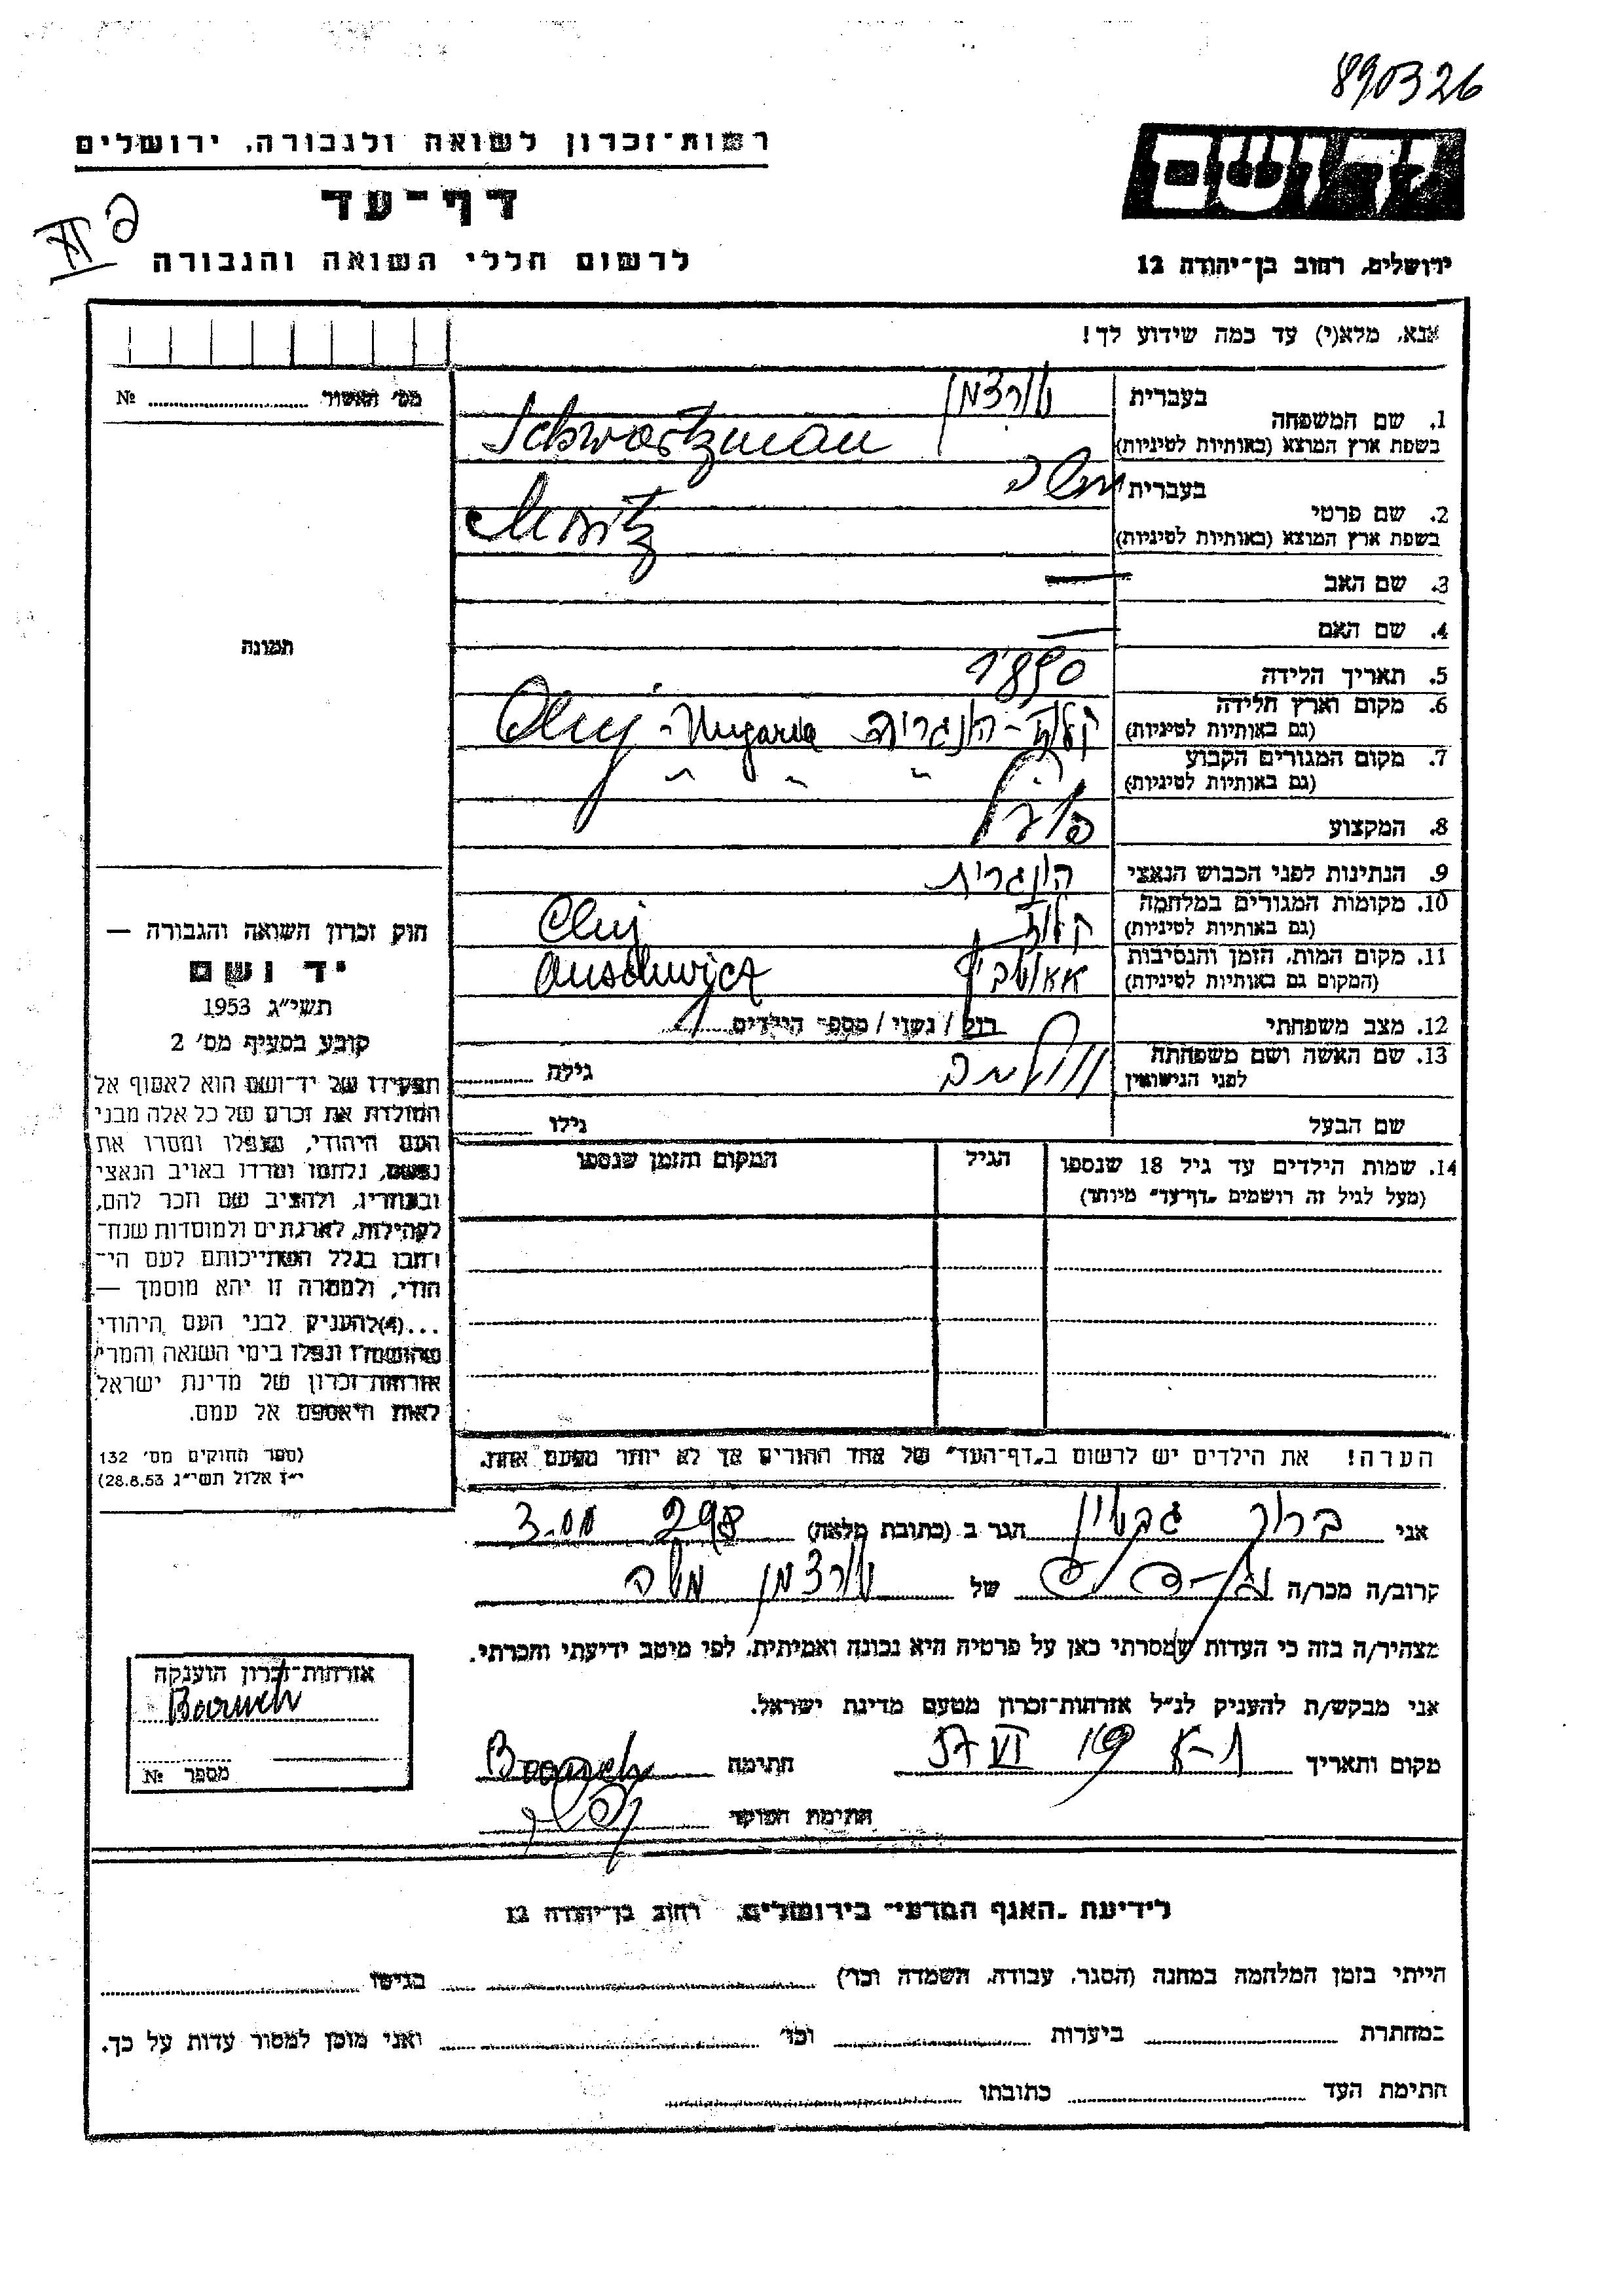 890326
רשות־זכרון לשואה ולגבורה, ירושלים
יד ושם
דף־עד
לרשום חללי השואה והגבורה
ירושלים, רחוב בן־יהודה 12
אנא, מלא(י) עד כמה שידוע לך!
מס' האשור № ....................
בעברית
שוורצמן
1. שם המשפחה
בשפת ארץ המוצא (באותיות לטיניות)
Schwartzman
בעברית משה
2. שם פרטי
בשפת ארץ המוצא (באותיות לטיניות)
Moritz
3. שם האב —
4. שם האם —
תמונה
5. תאריך הלידה 1890
6. מקום וארץ הלידה
(גם באותיות לטיניות)
קלוז - הונגריה Cluj - Ungaria
7. מקום המגורים הקבוע
(גם באותיות לטיניות)
8. המקצוע
9. הנתינות לפני הכבוש הנאצי הונגרית
10. מקומות המגורים במלחמה
(גם באותיות לטיניות)
קלוז Cluj
11. מקום המות, הזמן והנסיבות
(המקום גם באותיות לטיניות)
אאושביץ Auschwicz
12. מצב משפחתי רוק / נשוי / מספר הילדים
13. שם האשה ושם משפחתה
לפני הנישואין
גילה
שם הבעל גילו
14. שמות הילדים עד גיל 18 שנספו הגיל המקום והזמן שנספו
(מעל לגיל זה רושמים „דף־עד” מיוחד)
הערה! את הילדים יש לרשום ב„דף־העד” של אחד ההורים אך לא יותר מפעם אחת.
חוק זכרון השואה והגבורה —
יד ושם
תשי״ג 1953
קובע בסעיף מס' 2
תפקידו של יד־ושם הוא לאסוף אל
המולדת את זכרם של כל אלה מבני
העם היהודי, שנפלו ומסרו את
נפשם, נלחמו ומרדו באויב הנאצי
ובעוזריו, ולהציב שם וזכר להם,
לקהילות, לארגונים ולמוסדות שנח־
רבו בגלל השתייכותם לעם הי־
הודי, ולמטרה זו יהא מוסמך —
...(4) להעניק לבני העם היהודי
שהושמדו ונפלו בימי השואה והמרי
אזרחות־זכרון של מדינת ישראל
לאות היאספם אל עמם.
(ספר החוקים מס' 132
י״ז אלול תשי״ג 28.8.53)
אני ברוך הגר ב (כתובת מלאה) 298
קרוב/ה מכר/ה של שוורצמן משה
מצהיר/ה בזה כי העדות שמסרתי כאן על פרטיה היא נכונה ואמיתית, לפי מיטב ידיעתי והכרתי.
אני מבקש/ת להעניק לנ״ל אזרחות־זכרון מטעם מדינת ישראל.
מקום ותאריך ת-א 19 VI 57 חתימה Baruch
חתימת הפוקד
אזרחות־זכרון הוענקה
Baruch
מספר №
לידיעת „האגף המדעי” בירושלים, רחוב בן־יהודה 12
הייתי בזמן המלחמה במחנה (הסגר, עבודה, השמדה וכו') בגיטו
במחתרת ביערות וכו' ואני מוכן למסור עדות על כך.
חתימת העד כתובתו